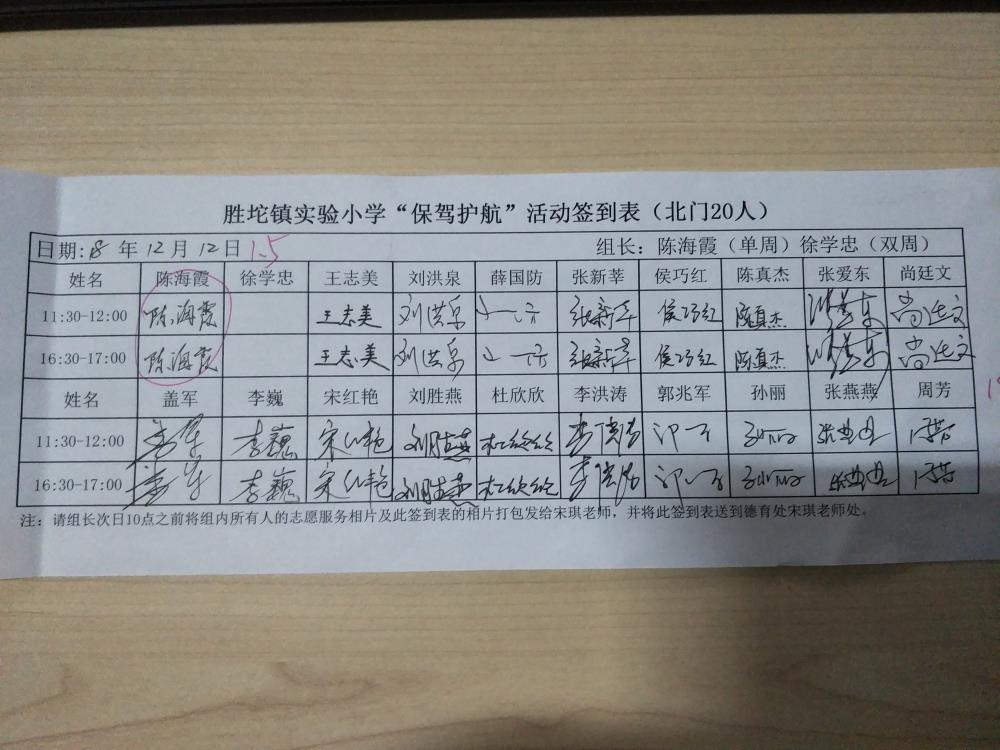 胜坨镇实验小学“保驾护航”活动签到表（北门20人）
日期:18 年 12 月 12 日 1.5 组长：陈海霞（单周）徐学忠（双周）
姓名 陈海霞 徐学忠 王志美 刘洪泉 薛国防 张新莘 侯巧红 陈真杰 张爱东 尚廷文
11:30-12:00 陈海霞 王志美 刘洪泉 张新莘 侯巧红 陈真杰 尚廷文
16:30-17:00 陈海霞 王志美 刘洪泉 张新莘 侯巧红 陈真杰 尚廷文
姓名 盖军 李巍 宋红艳 刘胜燕 杜欣欣 李洪涛 郭兆军 孙丽 张燕燕 周芳
11:30-12:00 盖军 李巍 宋红艳 刘胜燕 杜欣欣 李洪涛
16:30-17:00 盖军 李巍 宋红艳 刘胜燕 杜欣欣 李洪涛
注：请组长次日10点之前将组内所有人的志愿服务相片及此签到表的相片打包发给宋琪老师，并将此签到表送到德育处宋琪老师处。